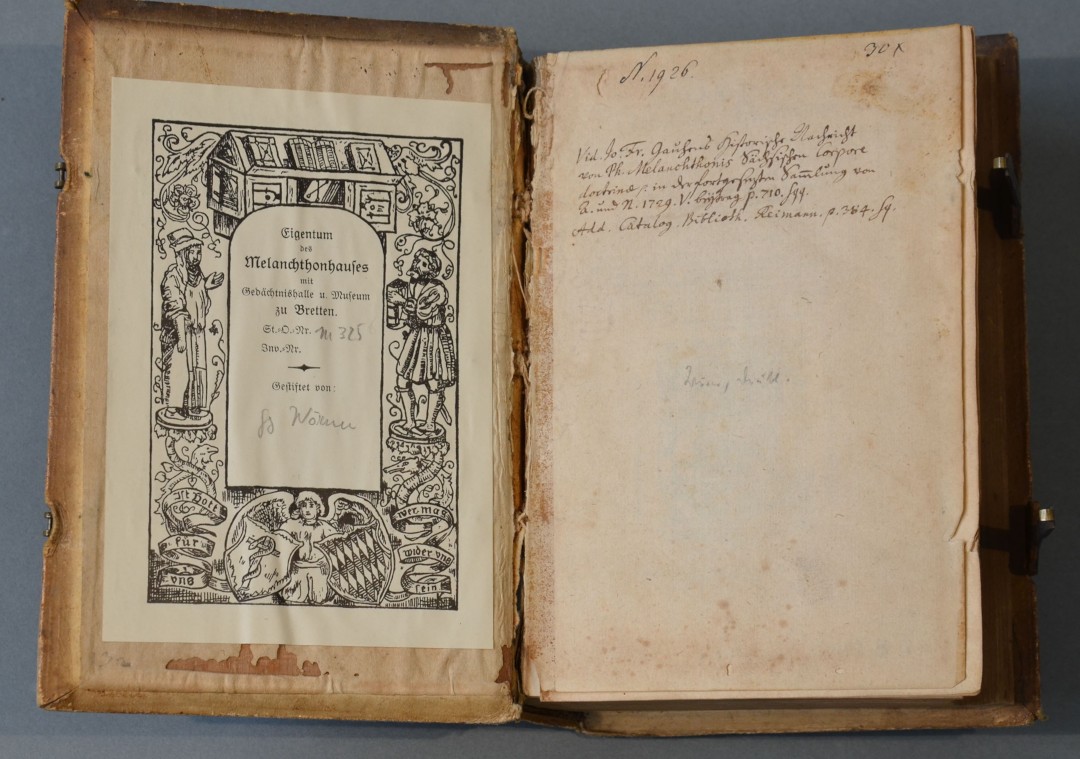 Eigentum
des
Melanchthonhauses
mit
Gedächtnishalle u. Museum
zu Bretten.
St.-O.-Nr. M 325
Inv.-Nr.
Gestiftet von:
Ist Gott
für
vns
wer mag
wider vns
sein
N. 1926.
30
Vid. Jo. Fr. Gauhens Historische Nachricht
von Ph. Melanchthonis Sächsischen Corpore
doctrinæ, in der fortgesetzten Sammlung von
A. und N. 1729. V. beytrag p. 710. sqq.
Add. Catalog. Biblioth. Reimann. p. 384. sq.